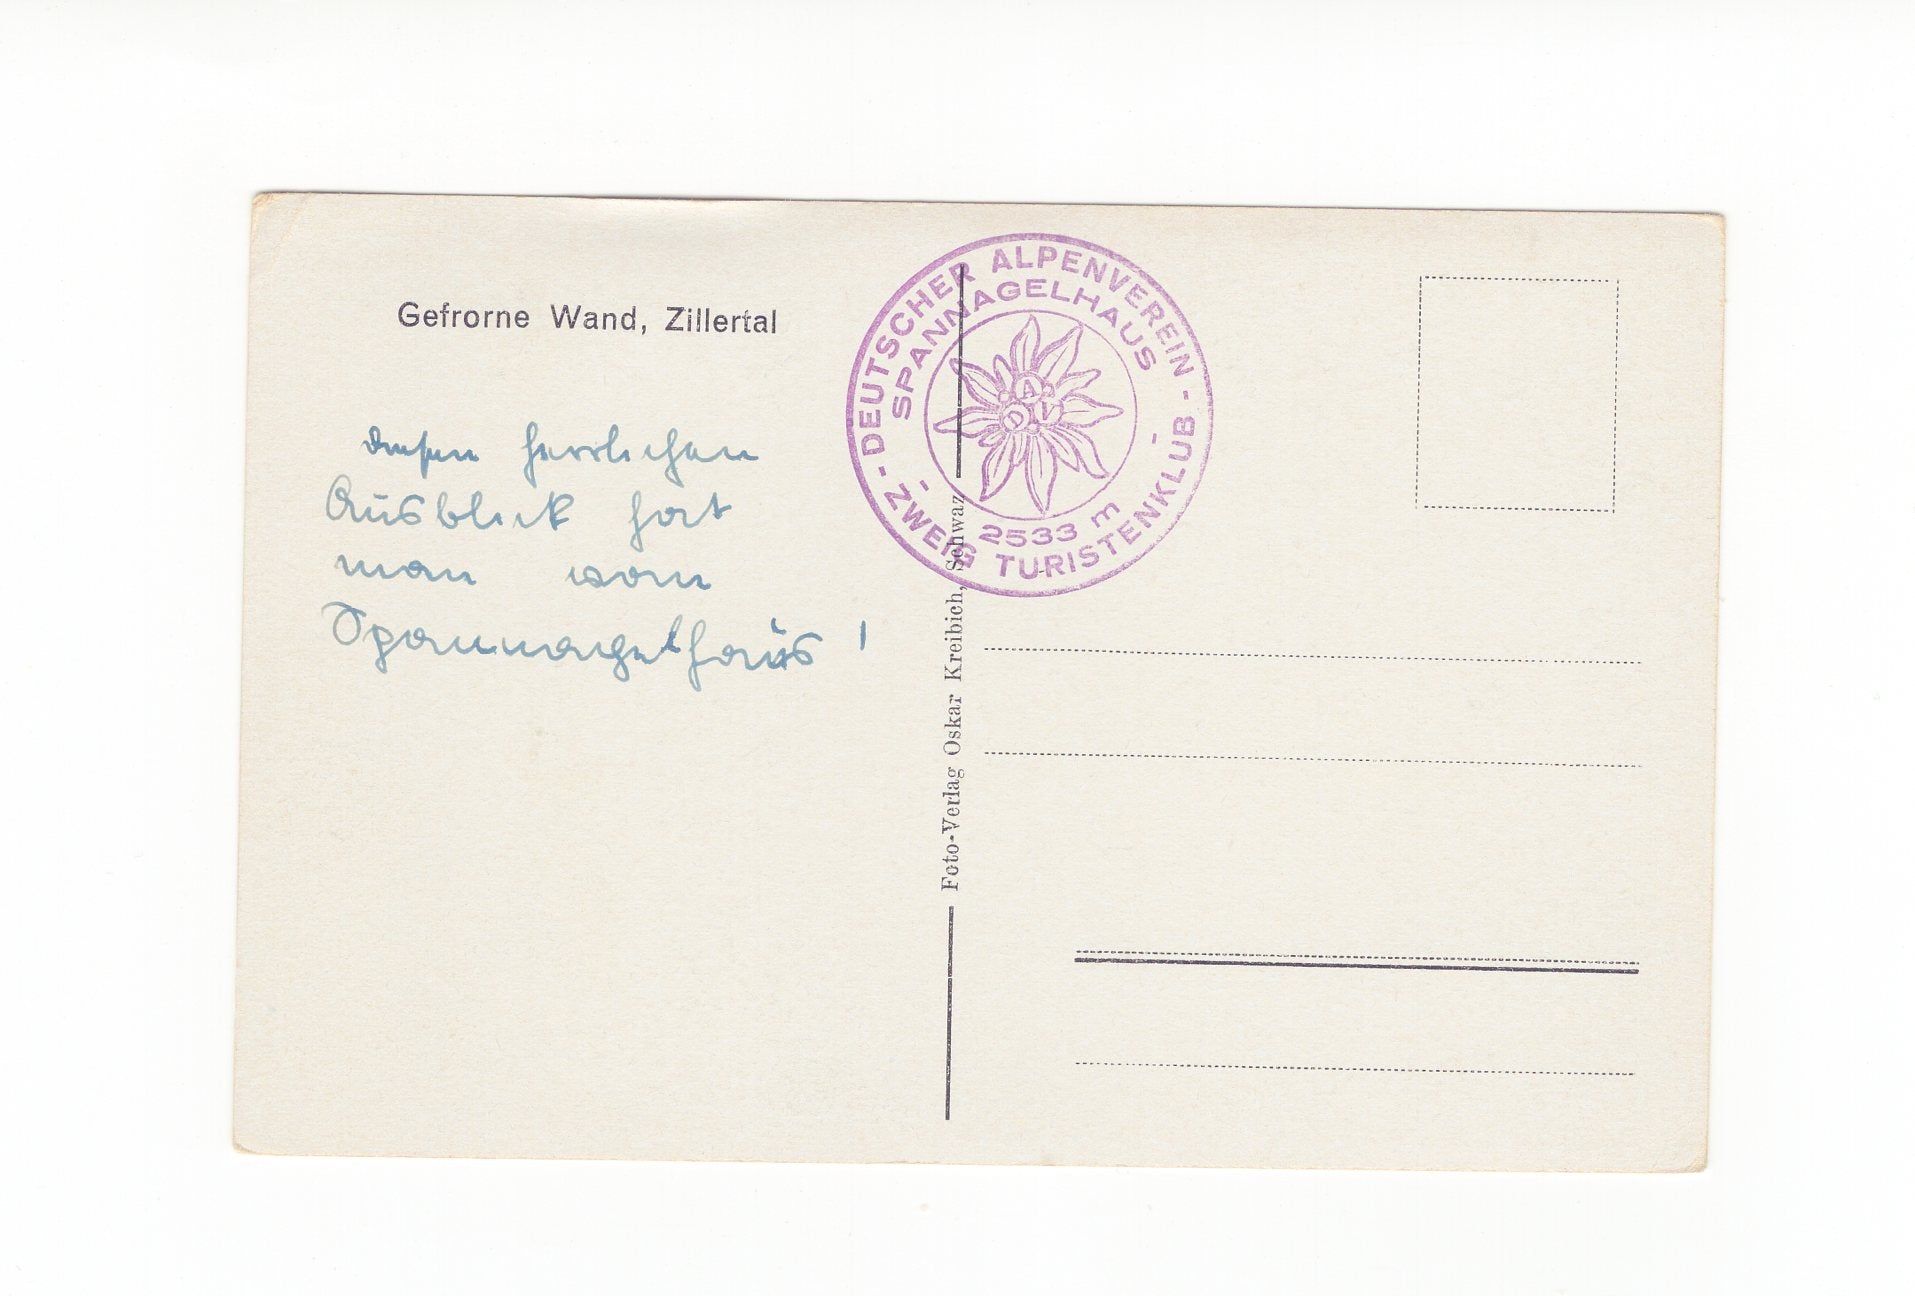 Gefrorne Wand, Zillertal
diesen herrlichen
Ausblick hat
man vom
Spannnagelhaus !
- DEUTSCHER ALPENVEREIN -
SPANNAGELHAUS
A
D V
- 2533 m -
ZWEIG TURISTENKLUB
Foto-Verlag Oskar Kreibich, Schwaz